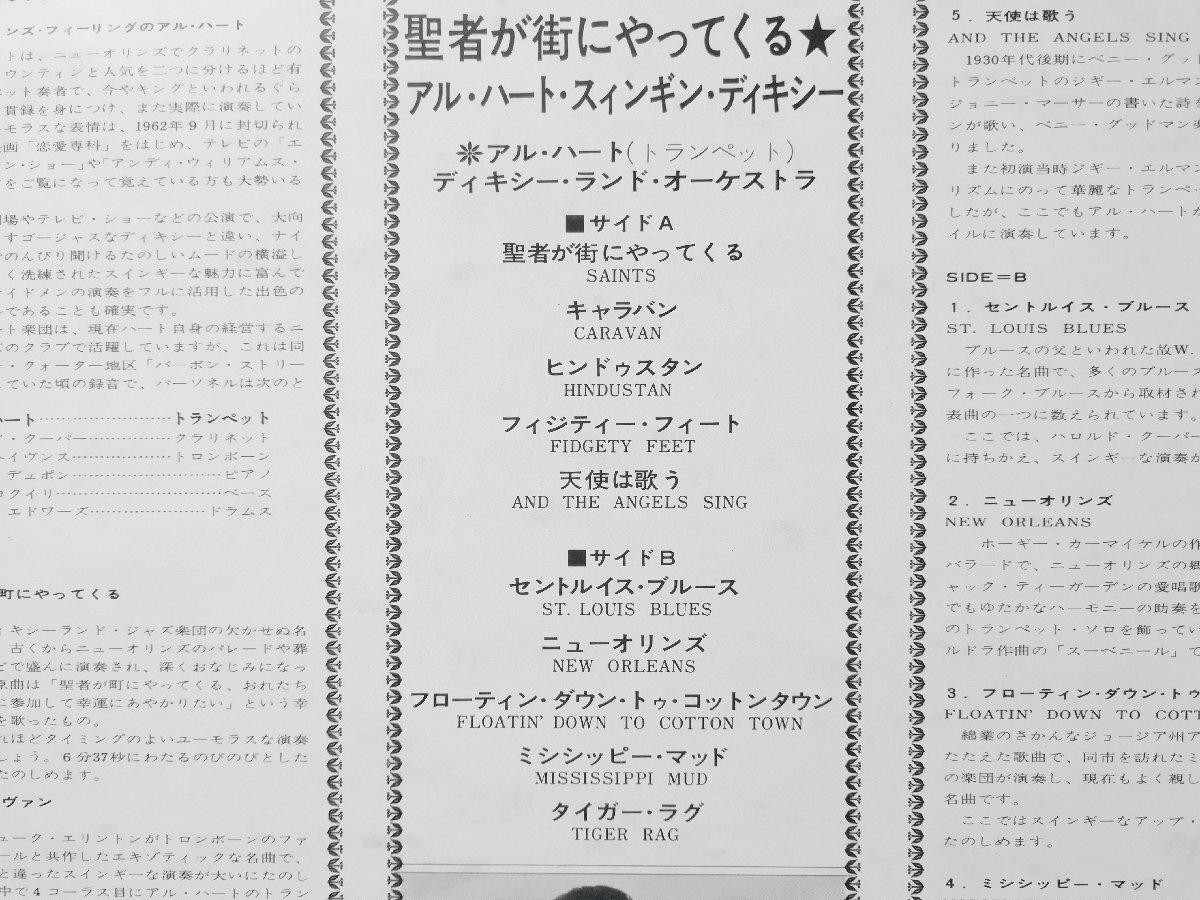 ンズ・フィーリングのアル・ハート
トは、ニューオリンズでクラリネットの
ウンティンと人気を二つに分けるほど有
ット奏者で、今やキングといわれるぐら
貫録を身につけ、また実際に演奏してい
モラスな表情は、1962年9月に封切られ
画「恋愛専科」をはじめ、テレビの「エ
ン・ショー」や「アンディ・ウィリアムス・
をご覧になって覚えている方も大勢いる
場やテレビ・ショーなどの公演で、大向
すゴージャスなディキシーと違い、ナイ
のんびり聞けるたのしいムードの横溢し
く洗練されたスインギーな魅力に富んで
イドメンの演奏をフルに活用した出色の
であることも確実です。
ート楽団は、現在ハート自身の経営するニ
のクラブで活躍していますが、これは同
・クォーター地区「バーボン・ストリー
ていた頃の録音で、パーソネルは次のと
ハート……………………トランペット
・クーパー……………クラリネット
ヘイヴンス……………トロンボーン
デュポン……………………ピアノ
コクイリ………………………ベース
エドワーズ…………………ドラムス
町にやってくる
ィキシーランド・ジャズ楽団の欠かせぬ名
古くからニューオリンズのパレードや葬
どで盛んに演奏され、深くおなじみになっ
原曲は「聖者が町にやってくる、おれたち
に参加して幸運にあやかりたい」という幸
を歌ったもの。
れほどタイミングのよいユーモラスな演奏
しょう。6分37秒にわたるのびのびとした
たのしめます。
ヴァン
ューク・エリントンがトロンボーンのファ
ールと共作したエキゾティックな名曲で、
と違ったスインギーな演奏が大いにたのし
中で4コーラス目にアル・ハートのトラン
聖者が街にやってくる★
アル・ハート・スィンギン・ディキシー
✳アル・ハート(トランペット)
ディキシー・ランド・オーケストラ
■サイドA
聖者が街にやってくる
SAINTS
キャラバン
CARAVAN
ヒンドゥスタン
HINDUSTAN
フィジティー・フィート
FIDGETY FEET
天使は歌う
AND THE ANGELS SING
■サイドB
セントルイス・ブルース
ST. LOUIS BLUES
ニューオリンズ
NEW ORLEANS
フローティン・ダウン・トゥ・コットンタウン
FLOATIN' DOWN TO COTTON TOWN
ミシシッピー・マッド
MISSISSIPPI MUD
タイガー・ラグ
TIGER RAG
5. 天使は歌う
AND THE ANGELS SING
1930年代後期にベニー・グッド
トランペットのジギー・エルマン
ジョニー・マーサーの書いた詩を
ンが歌い、ベニー・グッドマン楽
りました。
また初演当時ジギー・エルマン
リズムにのって華麗なトランペッ
したが、ここでもアル・ハートが
イルに演奏しています。
SIDE=B
1. セントルイス・ブルース
ST. LOUIS BLUES
ブルースの父といわれた故W.
に作った名曲で、多くのブルース
フォーク・ブルースから取材され
表曲の一つに数えられています。
ここでは、ハロルド・クーパー
に持ちかえ、スインギーな演奏が
2. ニューオリンズ
NEW ORLEANS
ホーギー・カーマイケルの作
バラードで、ニューオリンズの郷
ャック・ティーガーデンの愛唱歌
でもゆたかなハーモニーの助奏を
のトランペット・ソロを飾ってい
ルドラ作曲の「スーベニール」で
3. フローティン・ダウン・トゥ
FLOATIN' DOWN TO COTT
綿業のさかんなジョージア州ア
たたえた歌曲で、同市を訪れたミ
の楽団が演奏し、現在もよく親し
名曲です。
ここではスインギーなアップ・
たのしめます。
4. ミシシッピー・マッド